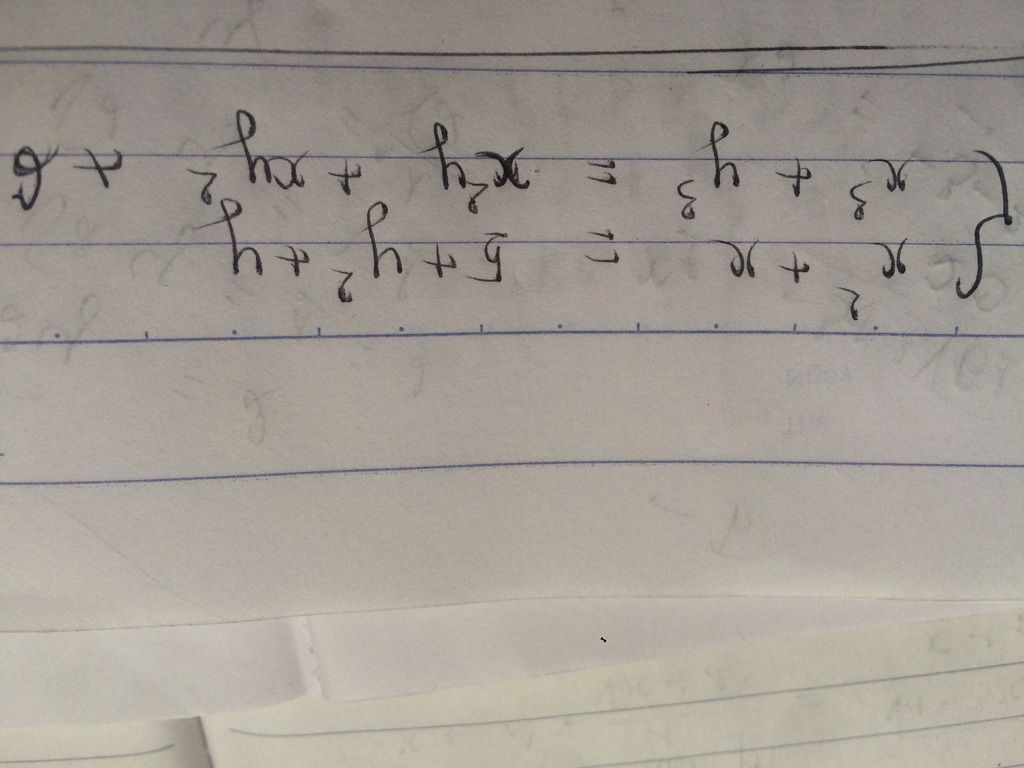 x² + x = 5 + y² + y
x³ + y³ = x²y + xy² + 6